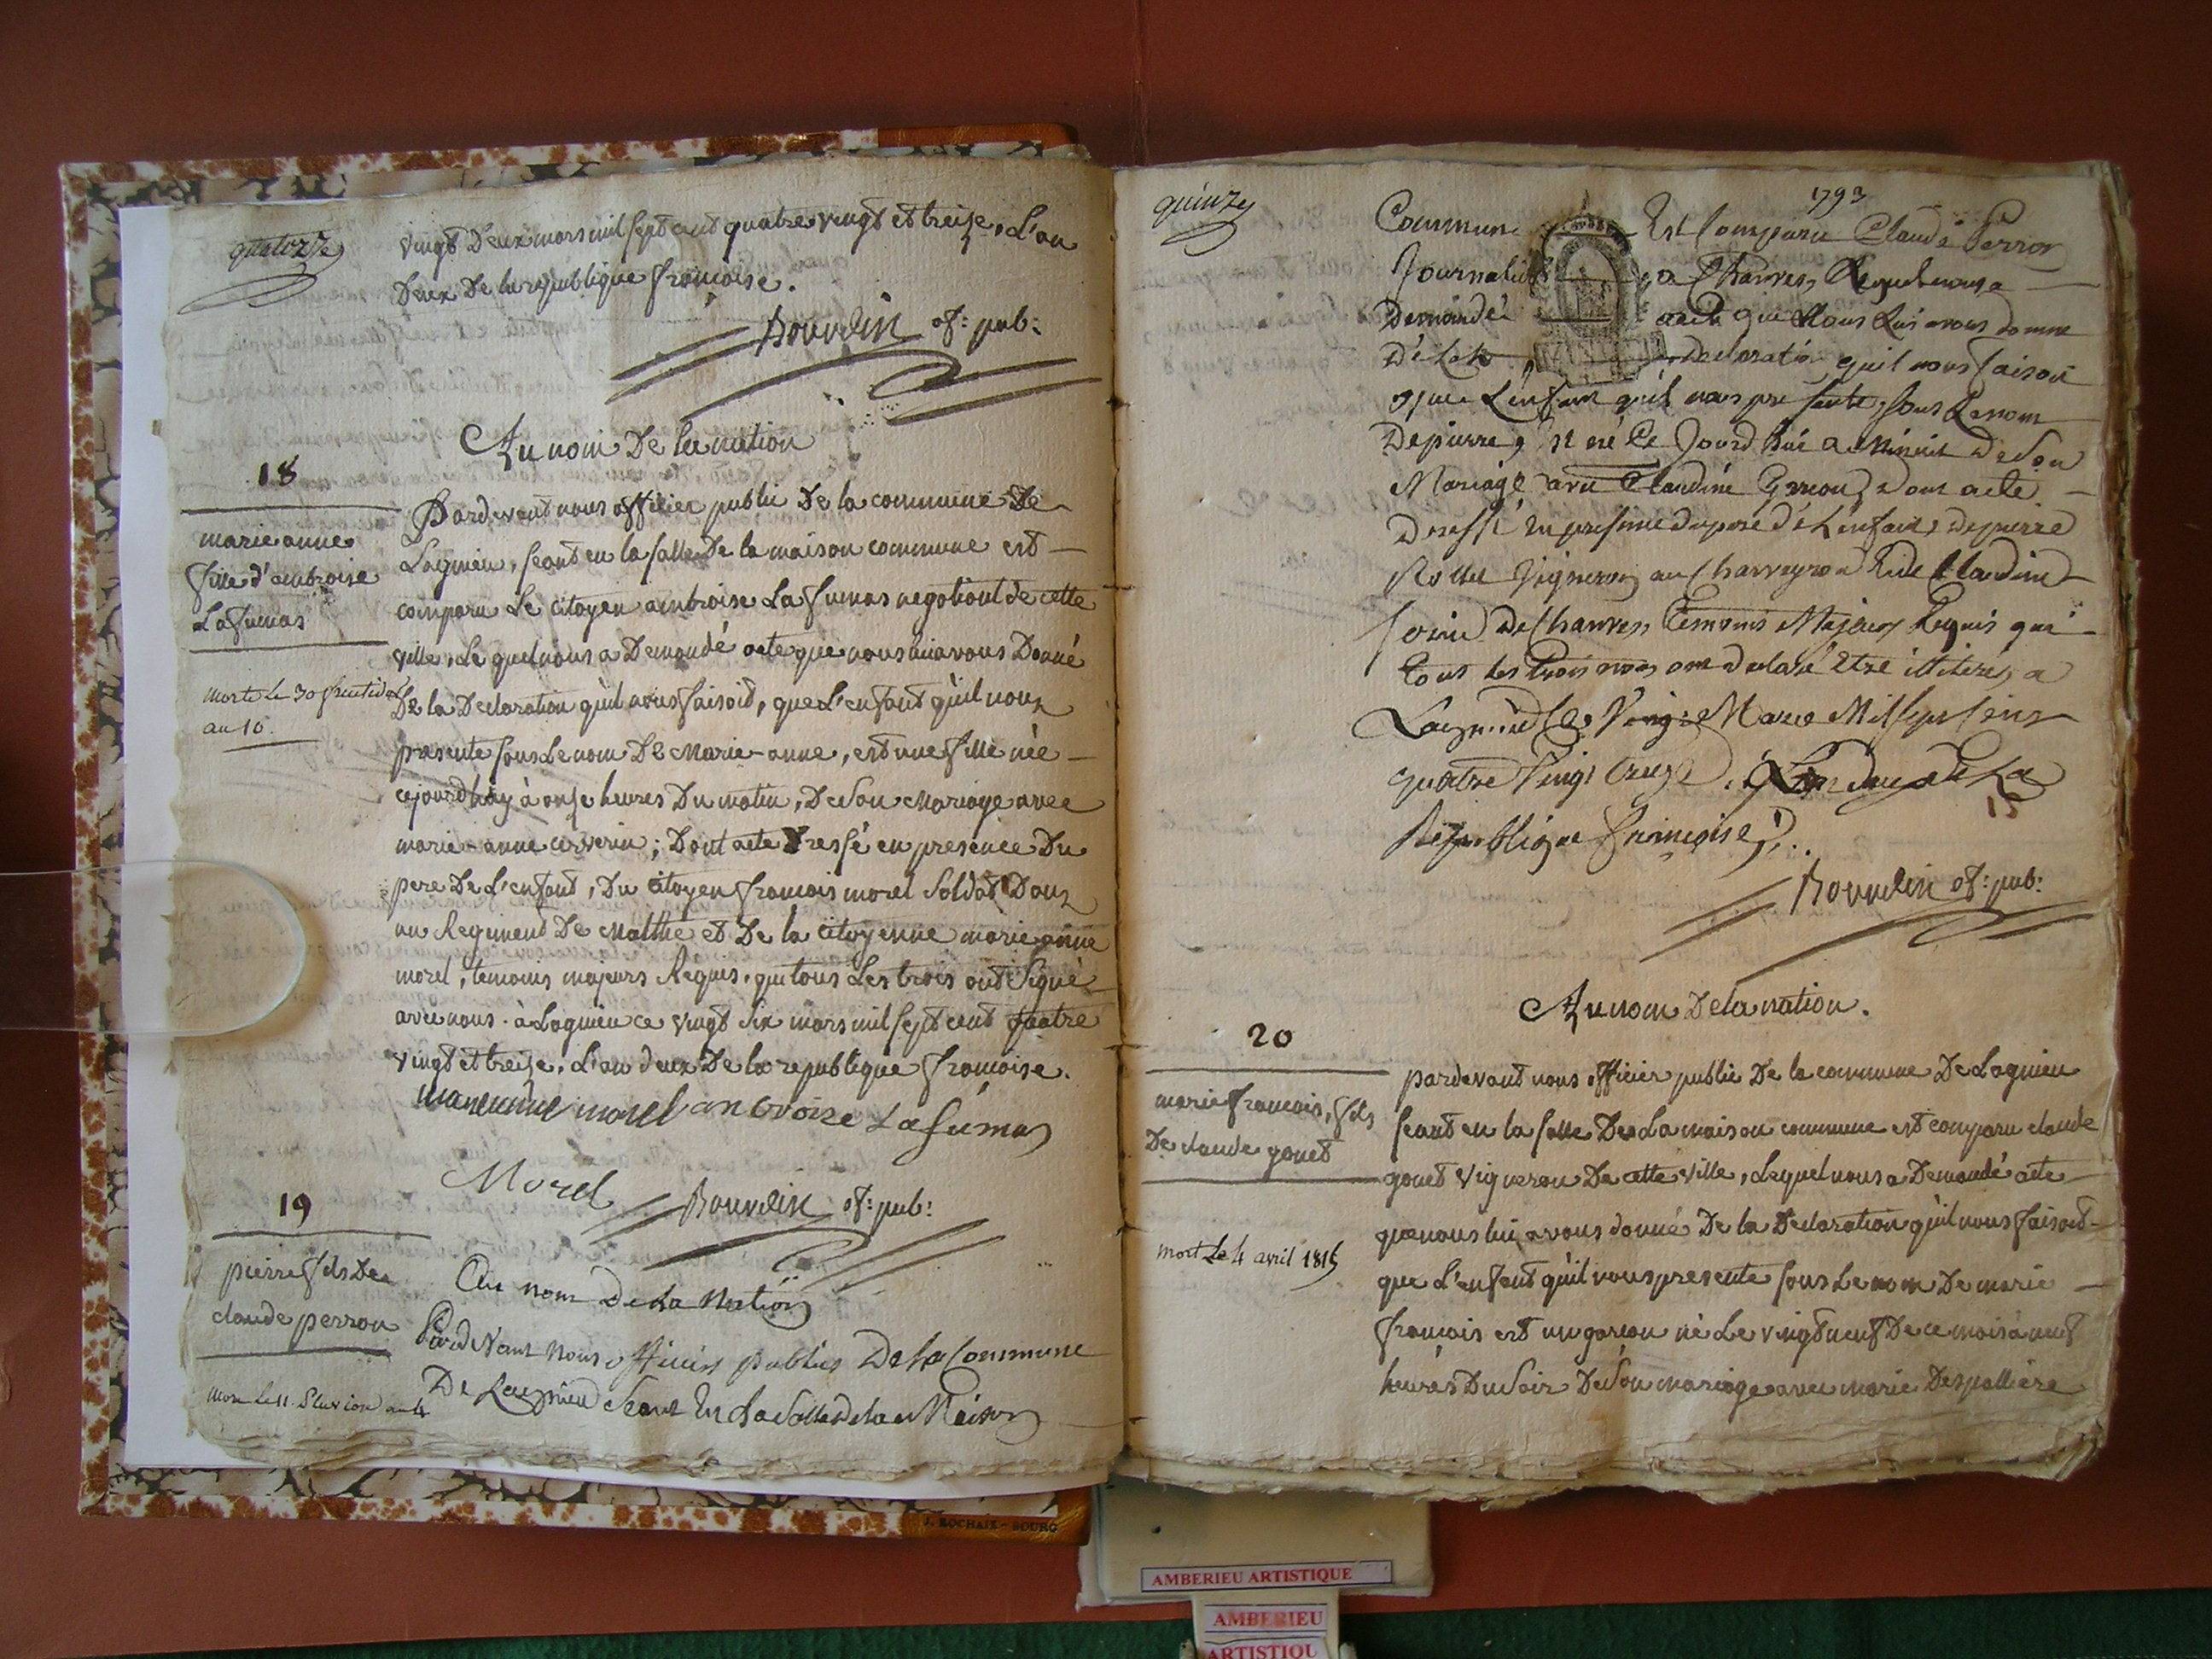 quatorze
vingt Deux mars mil sept cent quatre vingt et treize, L'an
Deux De la republique françoise.
Bourdin of: pub:
Au nom De la nation
18
marie anne
fille d'ambroise
Lafumas
morte le 30
an 10.
Pardevant nous officier public De la commune De
Lagnieu, seant en la salle De la maison commune est
comparu Le citoyen ambroise Lafumas negotiant de cette
ville, Le quel nous a Demandé acte que nous lui avons Donné
De la Declaration qu'il nous faisoid, que L'enfant qu'il nous
presente sous Le nom De Marie-anne, est une fille née
cejourdhuy à onze heures Du matin, De son mariage avec
marie-anne ; Dont acte Dressé en presence Du
pere De L'enfant, Du citoyen francois morel Soldat Dans
un Regiment De Malthe et De la citoyenne marie anne
morel, temoins majeurs Réquis, qui tous Les trois ont Signé
avec nous. à Lagnieu ce vingt six mars mil sept cent quatre
vingt et treize, L'an deux De la republique francoise.
marieanne morel ambroise Lafumas
Morel Bourdin of: pub:
19
pierre fils De
claude perron
mort le 11. Pluviose an 4
Au nom De La Nation
Pardevant Nous officier public De la Commune
De Lagnieu Séant En La Salle de la Maison
quinze
1793
Commune Est Comparu Claude Perron
Journalier a Charves, Lequel nous a
Demandé acte que Nous Lui avons donné
De La declaration quil nous faisoit
que L'enfant qu'il nous presente, sous Le nom
De pierre, est né Ce Jourd'hui a Minuit De Son
Mariage avec Claudine , dont acte
Dressé En presence du pere de L'enfant, de pierre
Rollet Vigneron au Charveyron Et de Claudine
de Charves, Temoins Majeurs Requis qui
tous les trois nous ont declaré Etre illiterés, a
Lagnieu Ce Mars Mil Sept Cent
quatre Vingt treize, L'an deux de La
15
Republique françoise.
Bourdin of: pub:
Au nom De la nation.
20
marie francois, fils
De claude gouet
mort Le 4 avril 1815
pardevant nous officier public De la commune De Lagnieu
seant en la salle De La maison commune est comparu claude
gouet vigneron De cette ville, Lequel nous a Demandé acte
que nous lui avons donné De la Declaration qu'il nous faisoid
que L'enfant qu'il nous presente sous Le nom De marie
francois est un garcon né Le vingt neuf De ce mois à neuf
heures Du Soir De Son mariage avec marie Despallière
J. ROCHAIX - BOURG
AMBERIEU ARTISTIQUE
AMBERIEU
ARTISTIQU